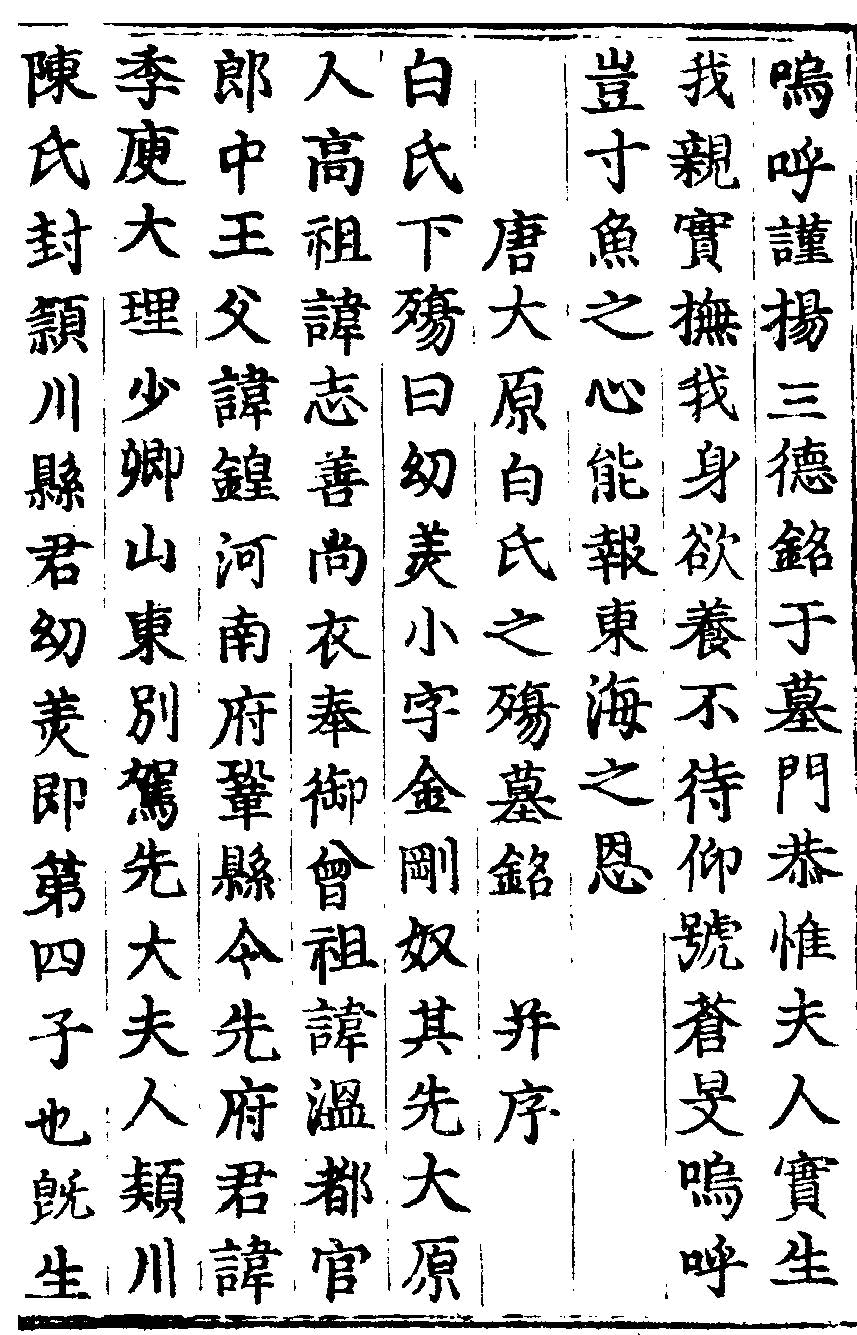 嗚呼謹揚三德銘于墓門恭惟夫人實生
我親實撫我身欲養不待仰號蒼旻嗚呼
豈寸魚之心能報東海之恩
唐大原白氏之殤墓銘 并序
白氏下殤曰幼美小字金剛奴其先大原
人高祖諱志善尚衣奉御曾祖諱溫都官
郎中王父諱鍠河南府鞏縣令先府君諱
季庚大理少卿山東別駕先大夫人頴川
陳氏封頴川縣君幼美即第四子也旣生